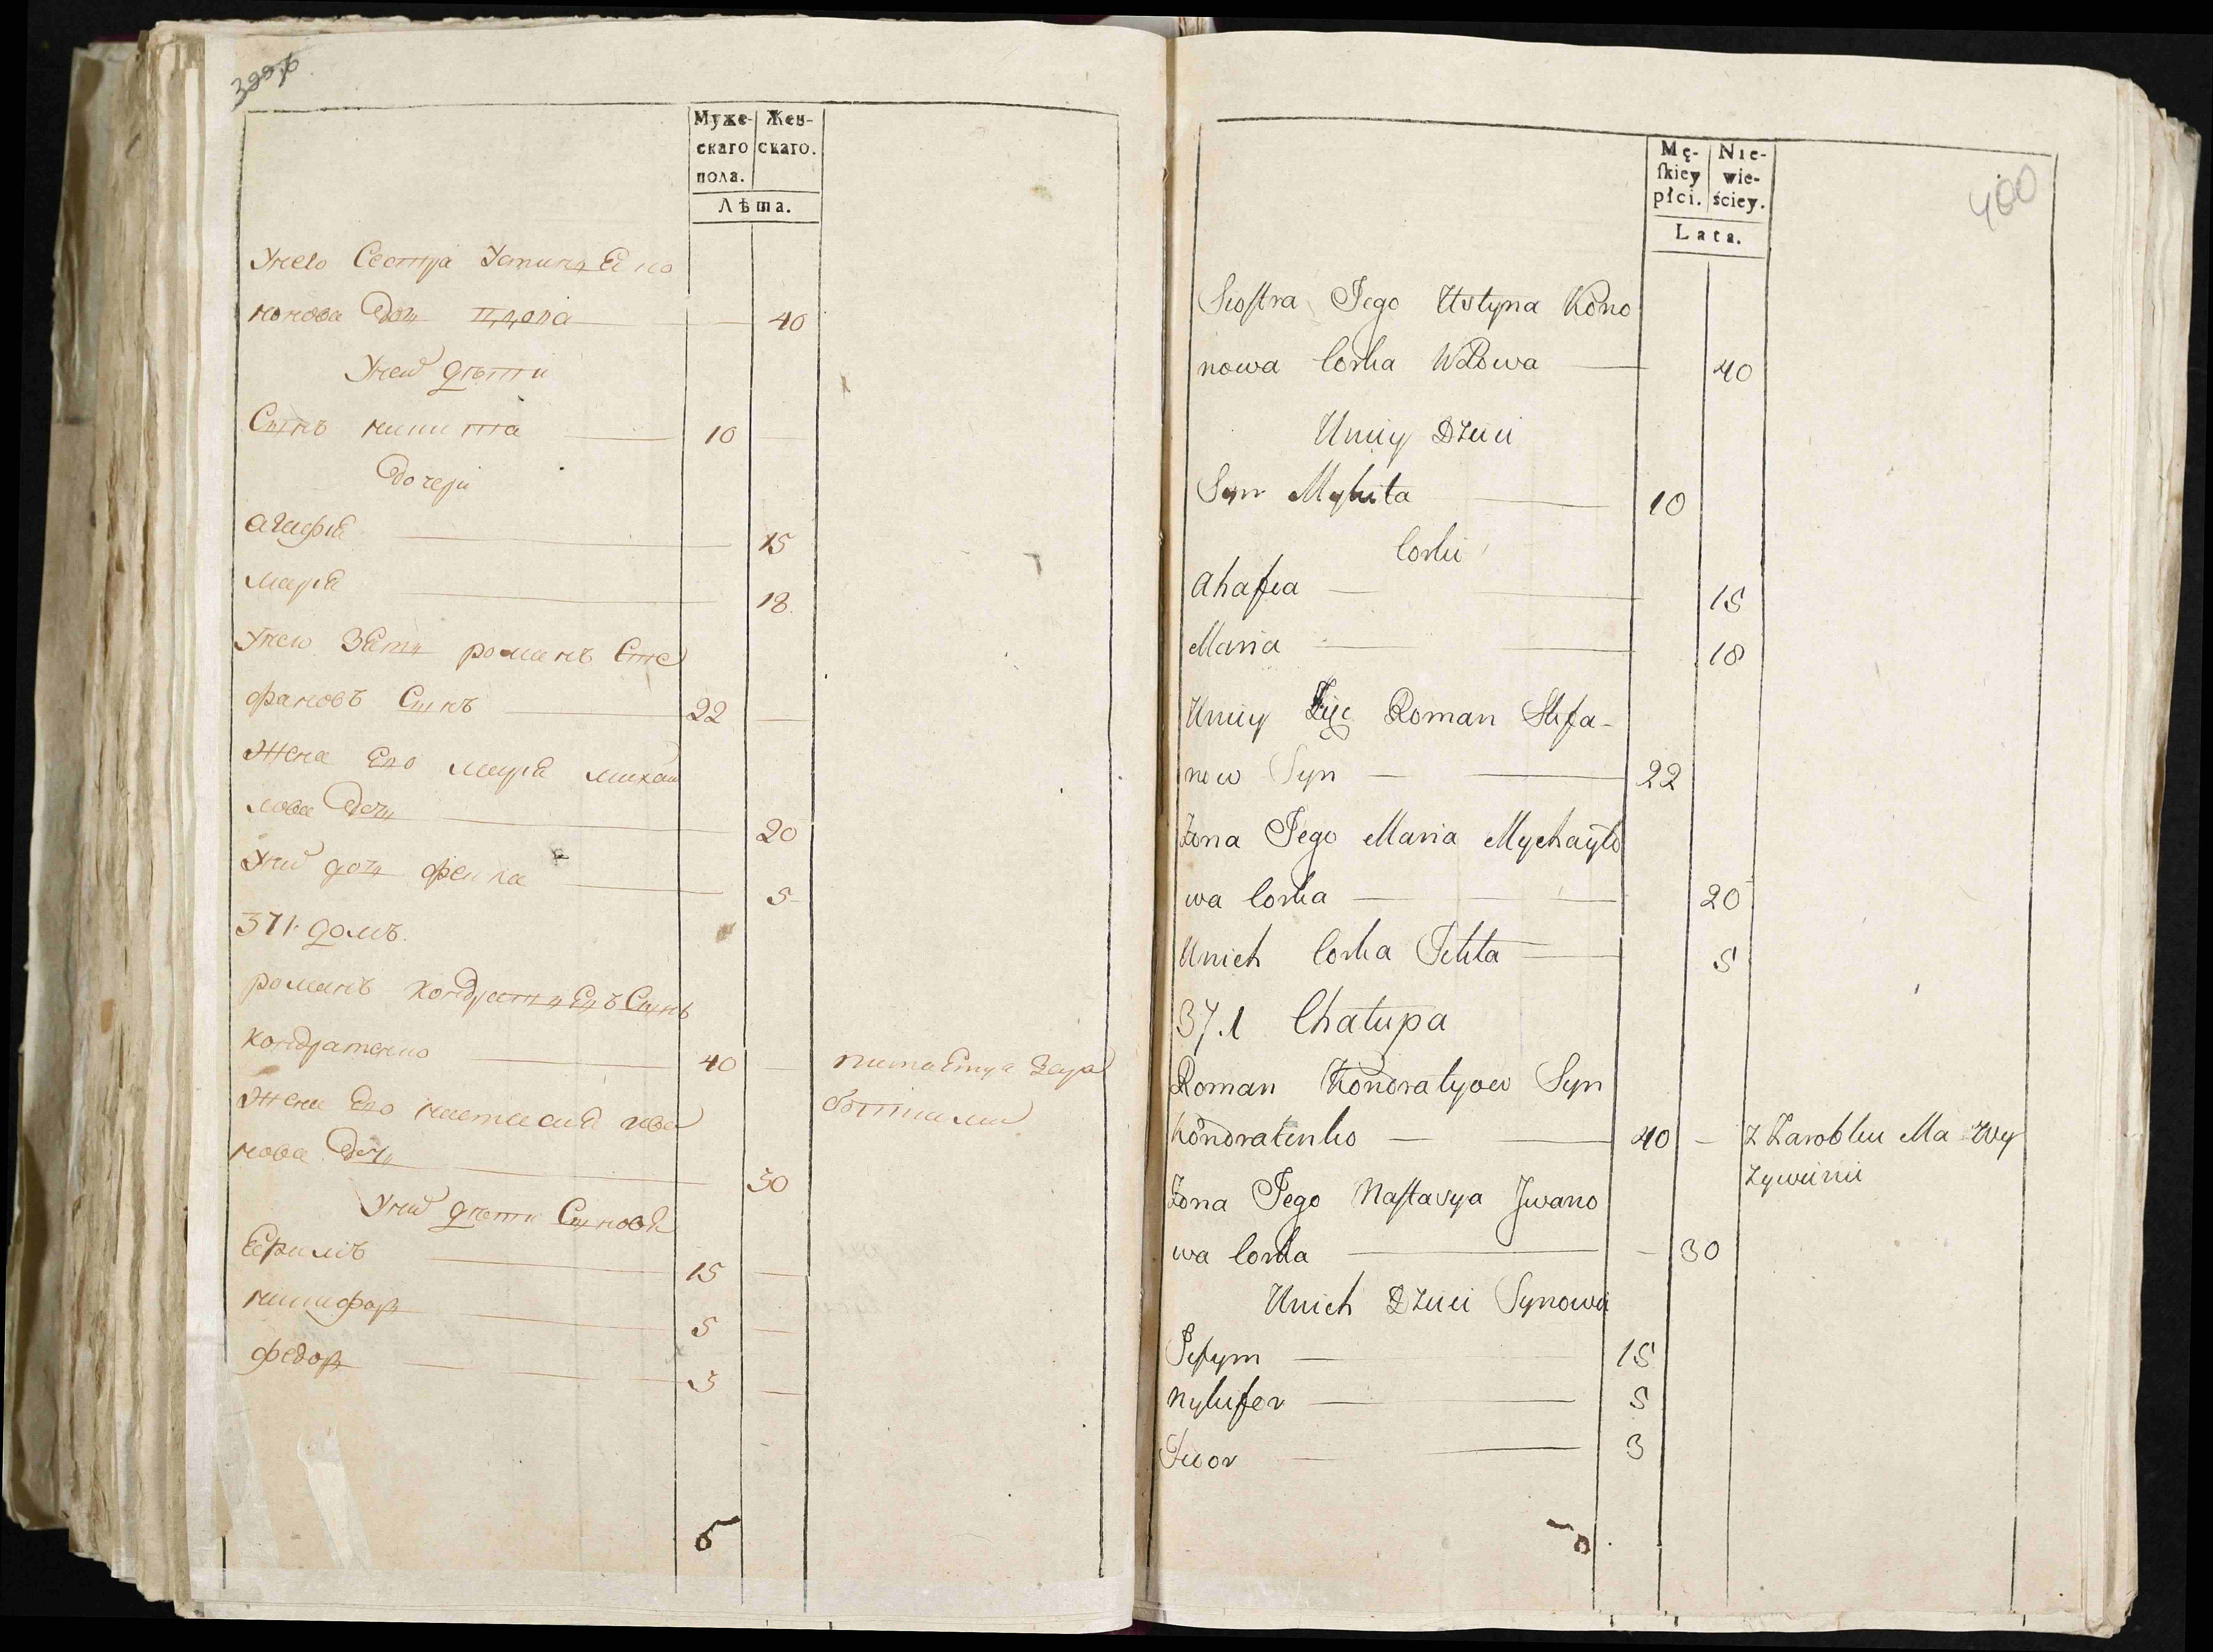 Муже- Жен-
скаго скаго.
пола.
Лѣта.
Унего Сестра Устина Коно
нонова дочь вдова — 40
Уней дѣти
Сынъ никита — 10 —
дочери
агафія — 15
марія — 18
Унея Зять романъ Сте
фановъ Сынъ — 22 —
Жена Его марія михаи
лова дочь — 20
Уних дочь — 5
371. домъ.
романъ кондратьевъ Сынъ
кондратенко — 40 —
Жена Его настасія ива
нова дочь — 30
Уних дѣти Сыновя
Ефимъ — 15 —
никифоръ — 5 —
федоръ — 3 —
400
Mę- Nie-
ſkiey wie-
płci. ściey.
Lata.
Siostra Jego Ustyna Kono
nowa Corka Wdowa — 40
Uniey Dzieci
Syn Mykita — 10
Corki
Ahafia — 15
Maria — 18
Uniey Zięć Roman Stefa-
now Syn — 22
Zona Jego Maria Mychayło
wa Corka — 20
Unich Corka — 5
37.1 Chałupa
Roman Kondratyow Syn
Kondratenko — 40 — z Zarobku Ma Wy
zywienie
Zona Jego Nastasya Jwano
wa Corka — 30
Unich Dzieci Synowie
Jefym — 15
Nykifor — 5
Fedor — 3